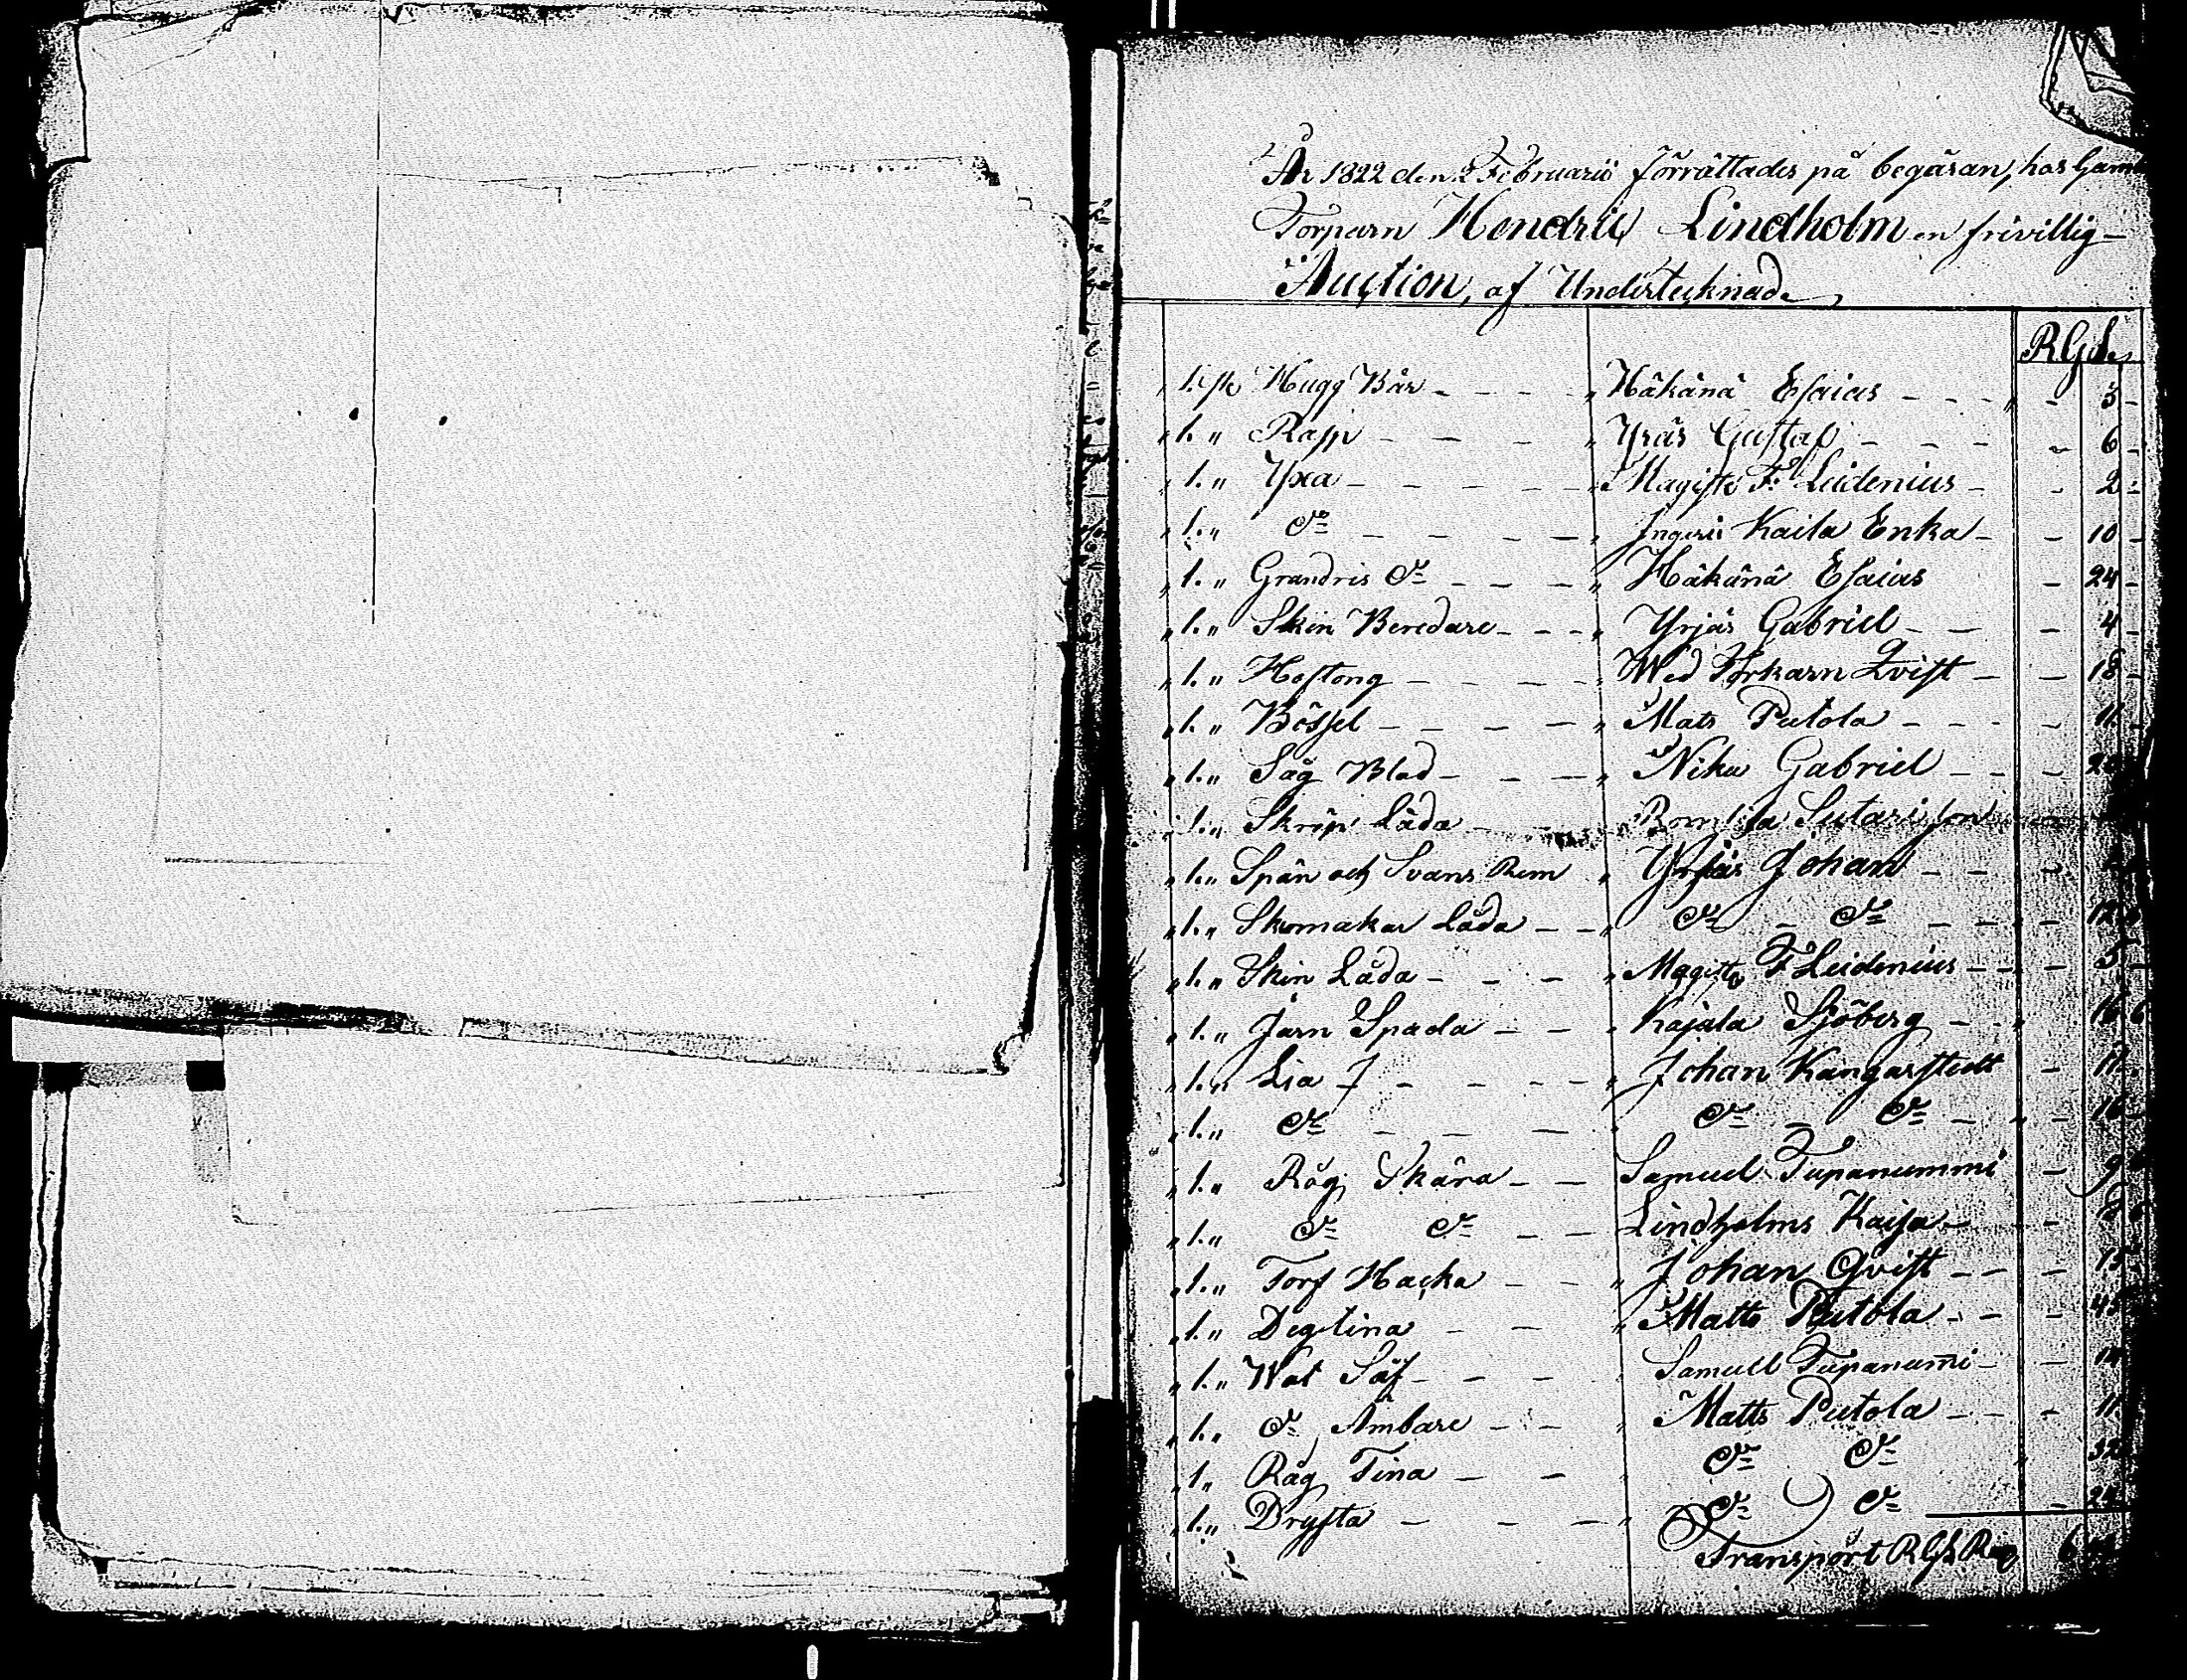 År 1822 den 2 Februarii förrättades på begäran, hos Gam
Torparn Hendric Lindholm en frivillig
Auction, af Undertecknade
RGds
1. st Hugg Bår - - - " Håkänä Esaias - - - 3 -
1. " Rasp - - - " Yrjäs Gustaf - - - 6 -
1. " Yxa - - - " Magistr F. Leidenius - - 2 -
1. " do - - - " Ingeri Kaila Enka - - 10 -
1. " Grandris do - - - " Håkänä Esaias - 24 -
1. " Skin Beredare - - - " Yrjäs Gabriel - - 4 -
1. " Hoftong - - - " Wed Torkarn Qvist - - 18 -
1. " Bössel - - - " Mats Putola - - - 11 -
1. " Såg Blad - - - " Niku Gabriel - - - 20
1. " Skrip Låda - Sutari son
1. " Spån och Svans Rem " Yrjäs Johan - - -
1. " Skomakar Låda - - " do - do - - - 12
1. " Skin Låda - - - " Magistr F Leidenius - - - 5 -
1. " Jern Spada - - " Kajala Sjöberg - - " 16 6
1. " Lia - - - " Johan Kangarstedt - 11 -
1. " do - - - " do - do - " - 16 -
1. " Råg Skära - - Samuel Tupanummi - 9
1. " do do - - Lindholms Kaisa - - 8
1. " Torf Hacka - - " Johan Qvist - - - 15
1. " Degtina - - " Matts Putola - - - 45
1. " Wat Så - - - " Samuell Tupanum̄i - - 14
1. " do Ämbare - - " Matts Putola - - - 11
1. " Råg Tina - - " do do " 32
1. " Drysta - - - " do do - 24
Transport RGds 6